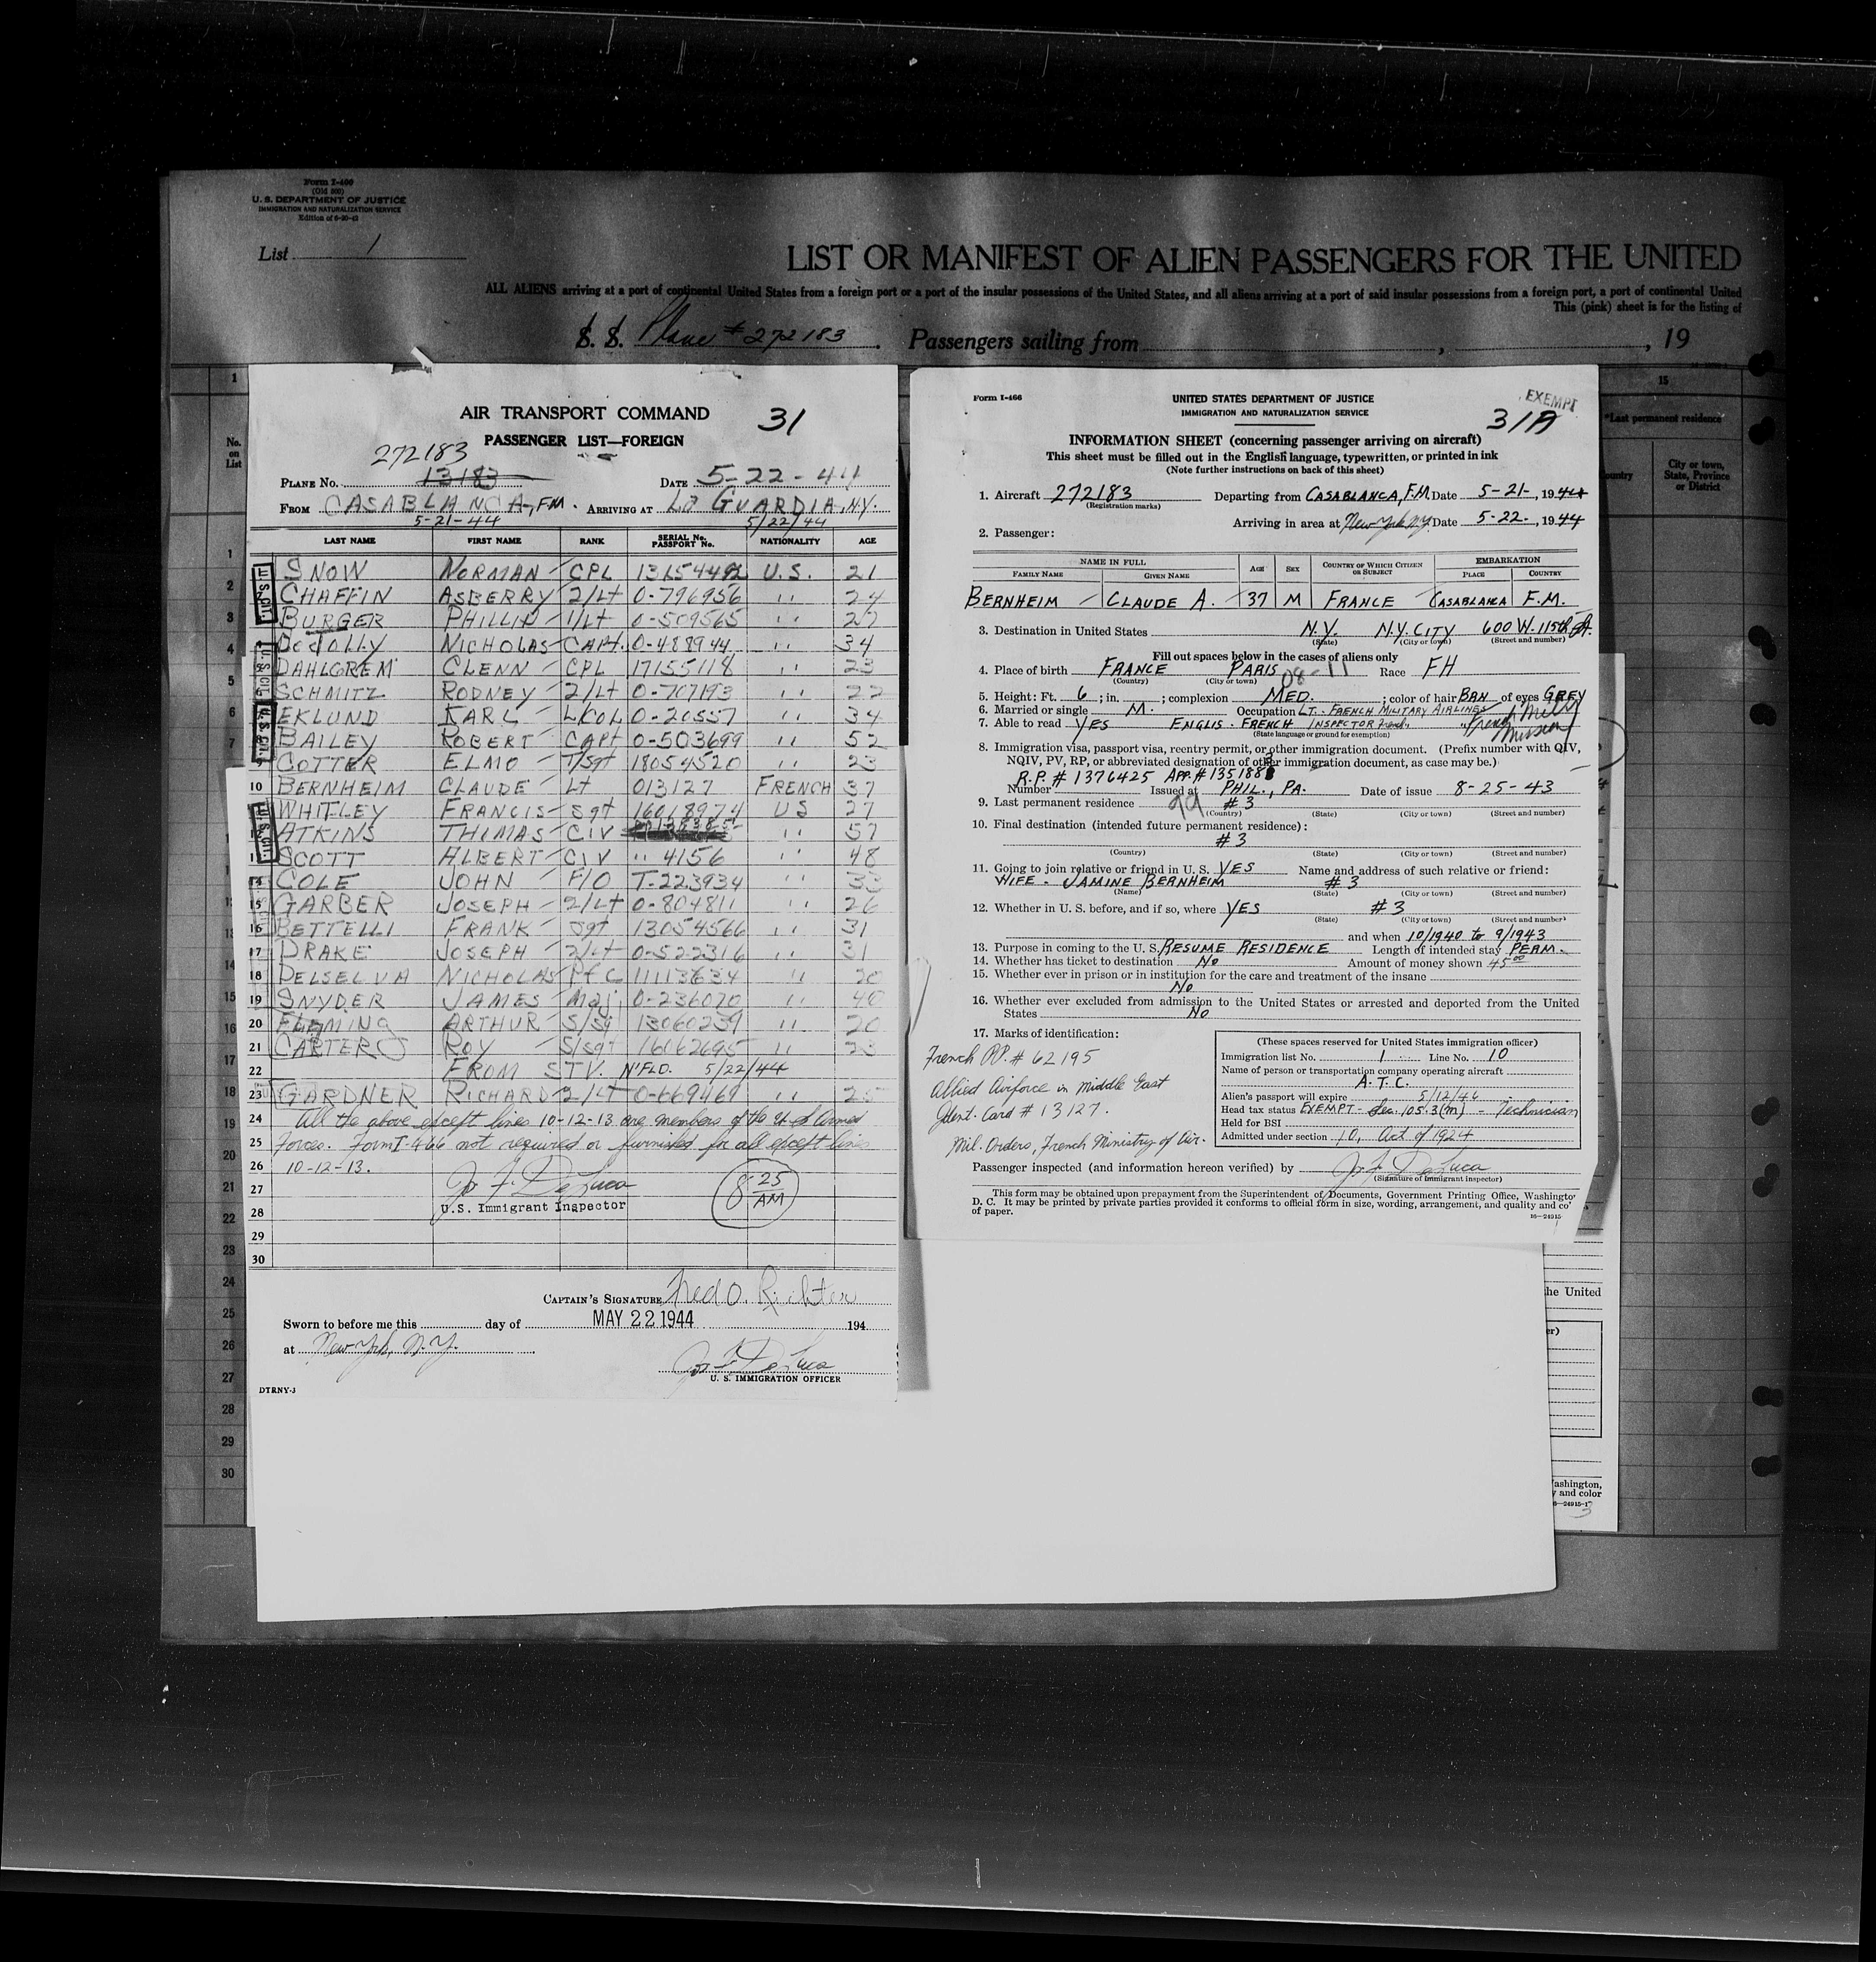 Form I-466
(Old 500)
U. S. DEPARTMENT OF JUSTICE
IMMIGRATION AND NATURALIZATION SERVICE
Edition of 6-20-43
List 1
LIST OR MANIFEST OF ALIEN PASSENGERS FOR THE UNITED
ALL ALIENS arriving at a port of continental United States from a foreign port or a port of the insular possessions of the United States, and all aliens arriving at a port of said insular possessions from a foreign port, a port of continental United
This (pink) sheet is for the listing of
S. S. Plane # 272183 Passengers sailing from , , 19
No. on List
15
*Last permanent residence
City or town, State, Province or District
AIR TRANSPORT COMMAND 31
PASSENGER LIST—FOREIGN
272183
PLANE NO. 13183 DATE 5-22-44
FROM CASABLANCA, F.M. ARRIVING AT LA GUARDIA, N.Y.
5-21-44 5/22/44
LAST NAME FIRST NAME RANK SERIAL No. PASSPORT No. NATIONALITY AGE
SNOW NORMAN CPL U.S. 21
CHAFFIN ASBERRY 2/Lt 0-796956 '' 24
BURGER PHILLIP 1/Lt 0-509565 '' 27
NICHOLAS CAPt. 0-488944 '' 34
DAHLGREM GLENN CPL 17155118 '' 23
SCHMITZ RODNEY 2/Lt 0-707193 '' 22
EKLUND KARL L/COL 0-20557 '' 34
BAILEY ROBERT CAPt 0-503699 '' 52
COTTER ELMO T/Sgt 18054520 '' 23
10 BERNHEIM CLAUDE Lt 013127 FRENCH 37
WHITLEY FRANCIS Sgt 16018974 US 27
ATKINS THIMAS CIV '' 57
SCOTT ALBERT CIV '' 4156 '' 48
14 COLE JOHN F/O T-223934 '' 33
15 GARBER JOSEPH 2/Lt 0-804811 '' 26
16 BETTELLI FRANK Sgt 13054566 '' 31
17 DRAKE JOSEPH 2/Lt 0-522316 '' 31
18 DELSELVA NICHOLAS PfC 11113634 '' 20
19 SNYDER JAMES Maj 0-236070 '' 40
20 FLEMING ARTHUR S/Sgt 13060239 '' 20
21 CARTER ROY S/Sgt 16162695 '' 23
22 FROM STV. N'FLD. 5/22/44
23 GARDNER RICHARD 2/Lt 0-669469 '' 25
24 All the above except lines 10-12-13 are members of the US Armed
25 Forces. Form I-466 not required or furnished for all except lines
26 10-12-13.
27 Jos. F. DeLuca 8 25 AM
28 U.S. Immigrant Inspector
29
30
CAPTAIN'S SIGNATURE Fred O. Richter
Sworn to before me this day of MAY 22 1944 194
at New York, N.Y.
Jos. F. DeLuca
U. S. IMMIGRATION OFFICER
DTRNY-3
Form I-466
UNITED STATES DEPARTMENT OF JUSTICE
IMMIGRATION AND NATURALIZATION SERVICE
EXEMPT
31A
INFORMATION SHEET (concerning passenger arriving on aircraft)
This sheet must be filled out in the English language, typewritten, or printed in ink
(Note further instructions on back of this sheet)
1. Aircraft 272183 Departing from CASABLANCA, F.M. Date 5-21-, 1944
(Registration marks)
Arriving in area at New York NY. Date 5-22-, 1944
2. Passenger:
NAME IN FULL AGE SEX COUNTRY OF WHICH CITIZEN OR SUBJECT EMBARKATION
FAMILY NAME GIVEN NAME PLACE COUNTRY
BERNHEIM CLAUDE A. 37 M FRANCE CASABLANCA F.M.
3. Destination in United States N.Y. N.Y. CITY 600 W. 115th St.
(State) (City or town) (Street and number)
Fill out spaces below in the cases of aliens only
4. Place of birth FRANCE PARIS 08-11 Race FH
(Country) (City or town)
5. Height: Ft. 6 ; in. ; complexion MED. ; color of hair BRN of eyes GREY
6. Married or single M. Occupation LT. FRENCH MILITARY AIRLINES
7. Able to read YES ENGLIS - FRENCH INSPECTOR French Mission
(State language or ground for exemption)
8. Immigration visa, passport visa, reentry permit, or other immigration document. (Prefix number with QIV,
NQIV, PV, RP, or abbreviated designation of other immigration document, as case may be.)
R.P. # 1376425 APP. # 1351888
Number Issued at PHIL., PA. Date of issue 8-25-43
9. Last permanent residence 99 # 3
(Country) (State) (City or town) (Street and number)
10. Final destination (intended future permanent residence):
# 3
(Country) (State) (City or town) (Street and number)
11. Going to join relative or friend in U. S. YES Name and address of such relative or friend:
WIFE - JAMINE BERNHEIM # 3
(Name) (State) (City or town) (Street and number)
12. Whether in U. S. before, and if so, where YES # 3
(State) (City or town) (Street and number)
and when 10/1940 to 9/1943
13. Purpose in coming to the U. S. RESUME RESIDENCE Length of intended stay PERM.
14. Whether has ticket to destination No Amount of money shown 45.00
15. Whether ever in prison or in institution for the care and treatment of the insane
No
16. Whether ever excluded from admission to the United States or arrested and deported from the United
States No
17. Marks of identification:
French P.P. # 62195
Allied Airforce in Middle East
Ident. Card # 13127.
Mil. Orders, French Ministry of Air.
(These spaces reserved for United States immigration officer)
Immigration list No. 1 Line No. 10
Name of person or transportation company operating aircraft
A.T.C.
Alien's passport will expire 5/12/46
Head tax status EXEMPT - Sec. 105.3(m) - Technician
Held for BSI
Admitted under section 10, Act of 1924
Passenger inspected (and information hereon verified) by Jos. F. DeLuca
(Signature of immigrant inspector)
This form may be obtained upon prepayment from the Superintendent of Documents, Government Printing Office, Washington
D. C. It may be printed by private parties provided it conforms to official form in size, wording, arrangement, and quality and co
of paper.
16—24915
he United
ashington,
y and color